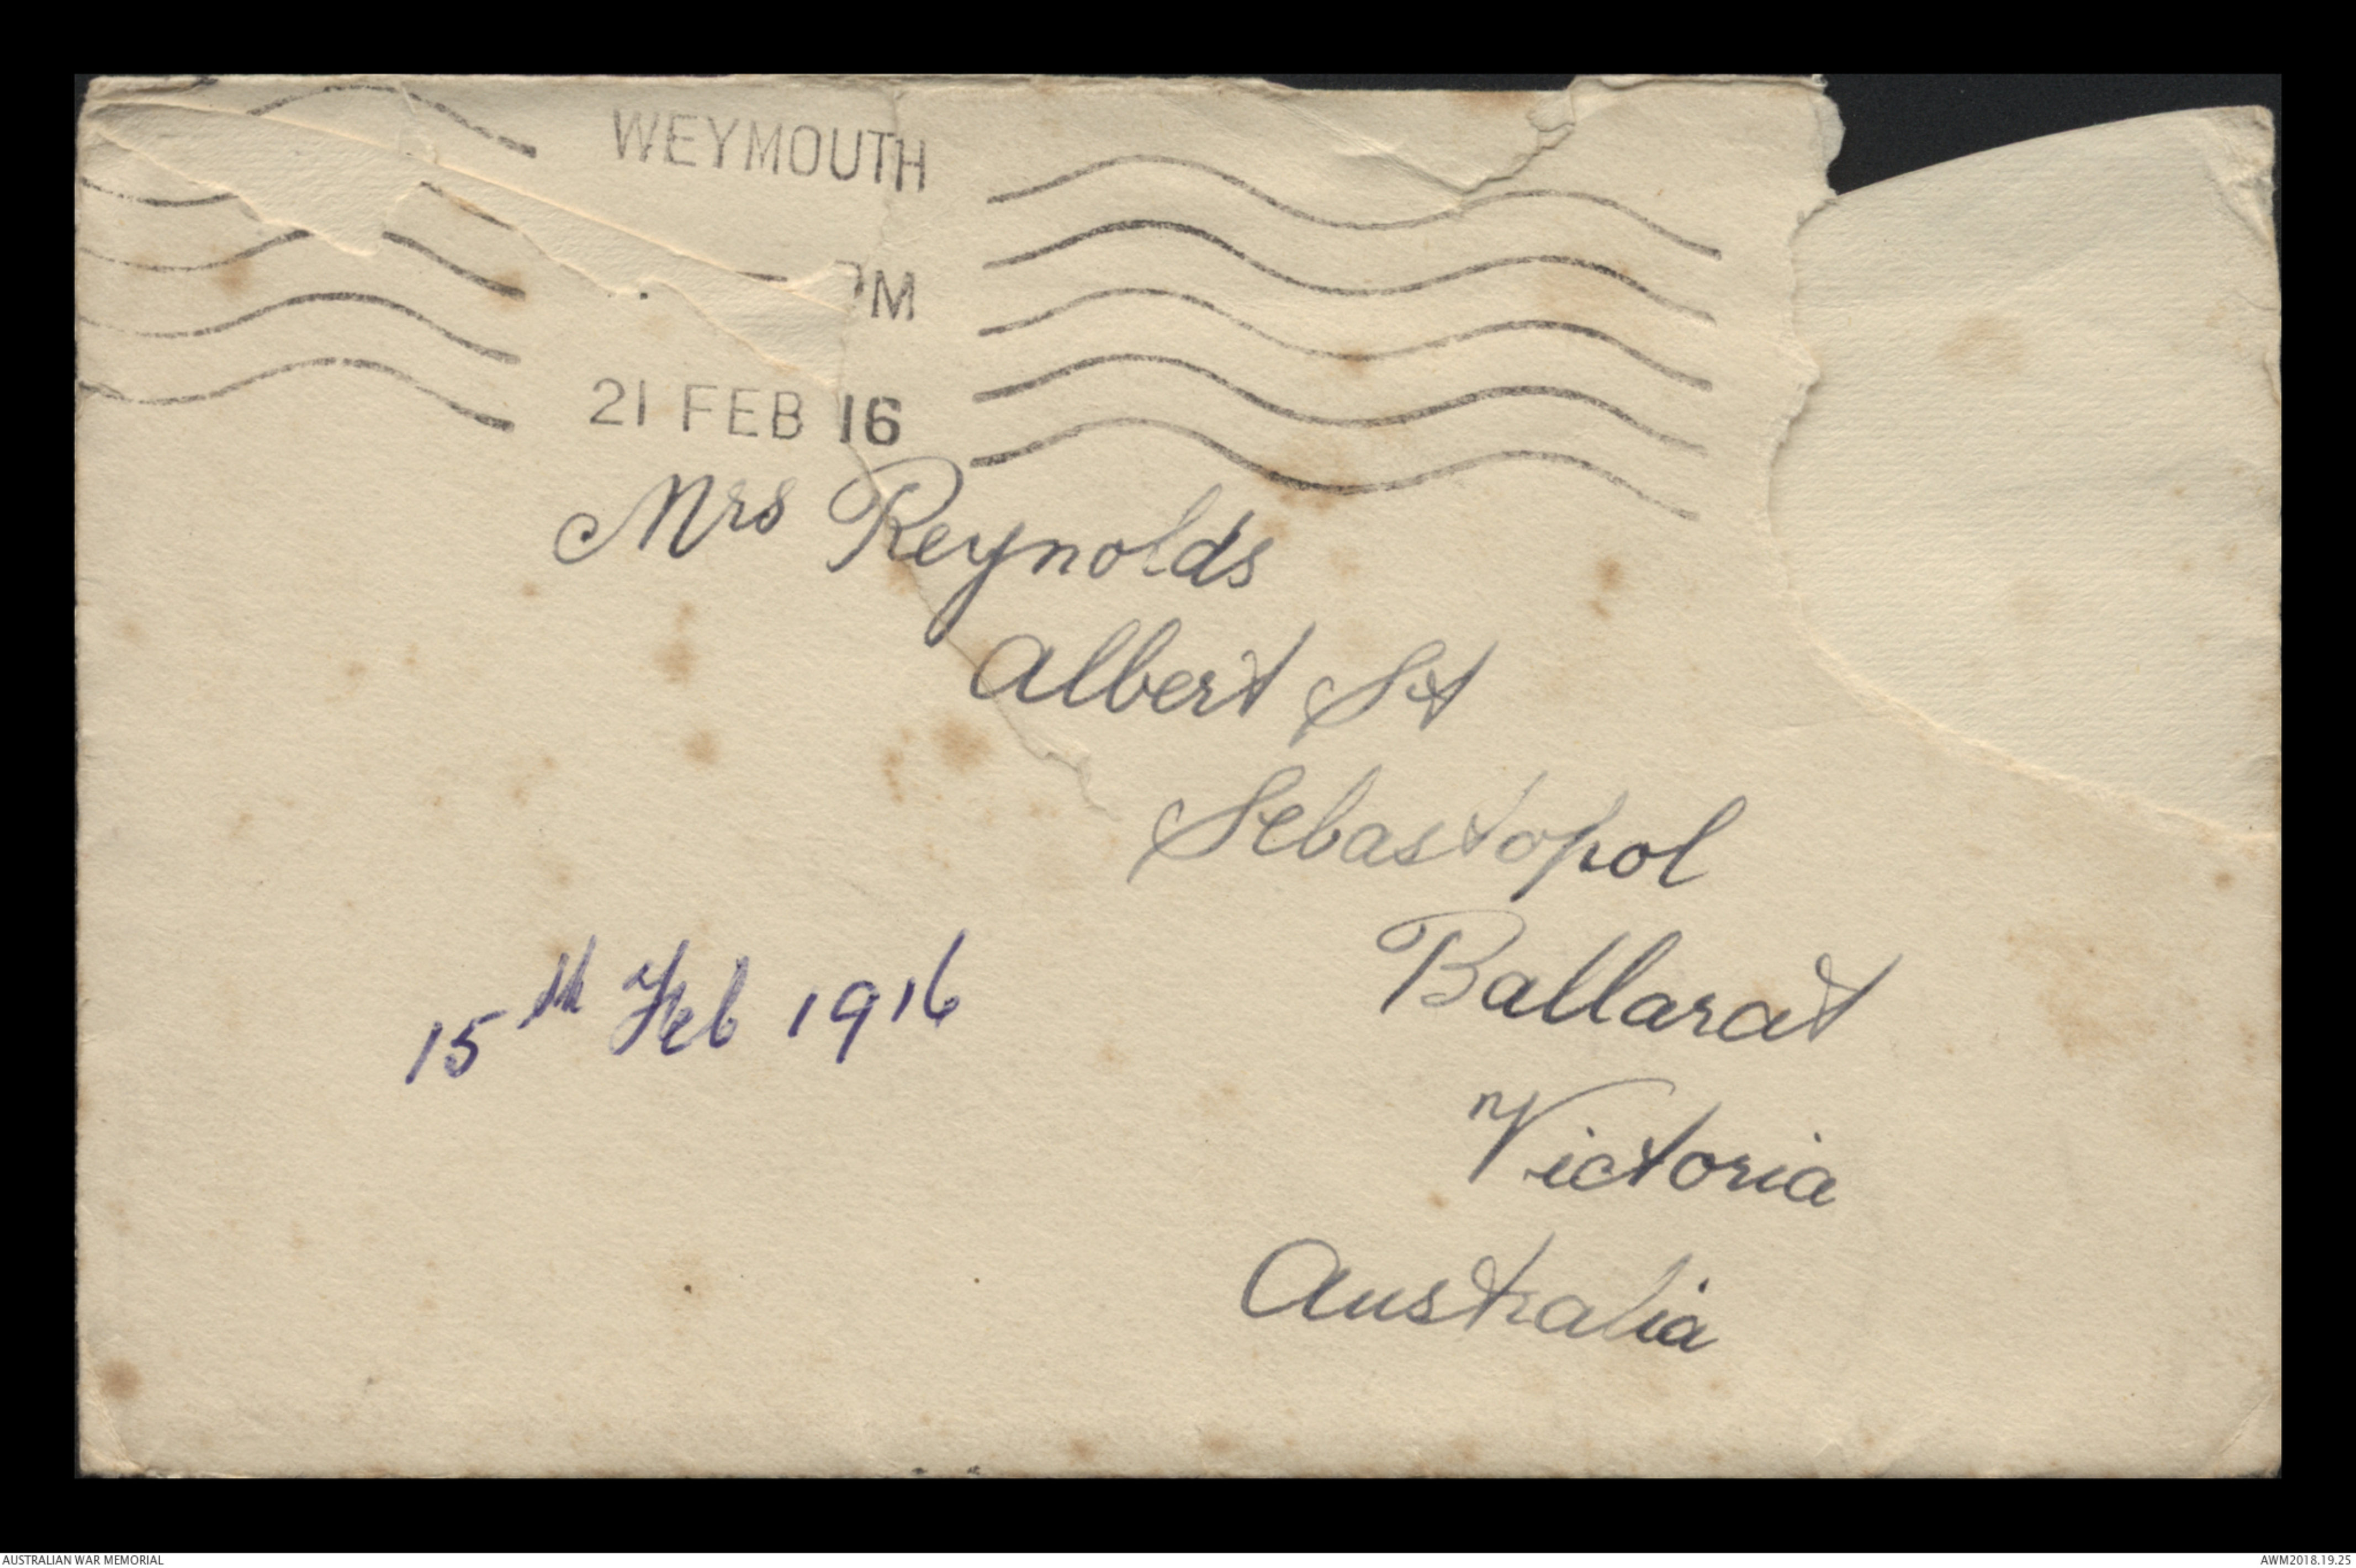 WEYMOUTH
PM
21 FEB 16
Mrs Reynolds
Albert St
Sebastopol
Ballarat
15th Feb 1916
Victoria
Australia
AUSTRALIAN WAR MEMORIAL
AWM2018.19.25